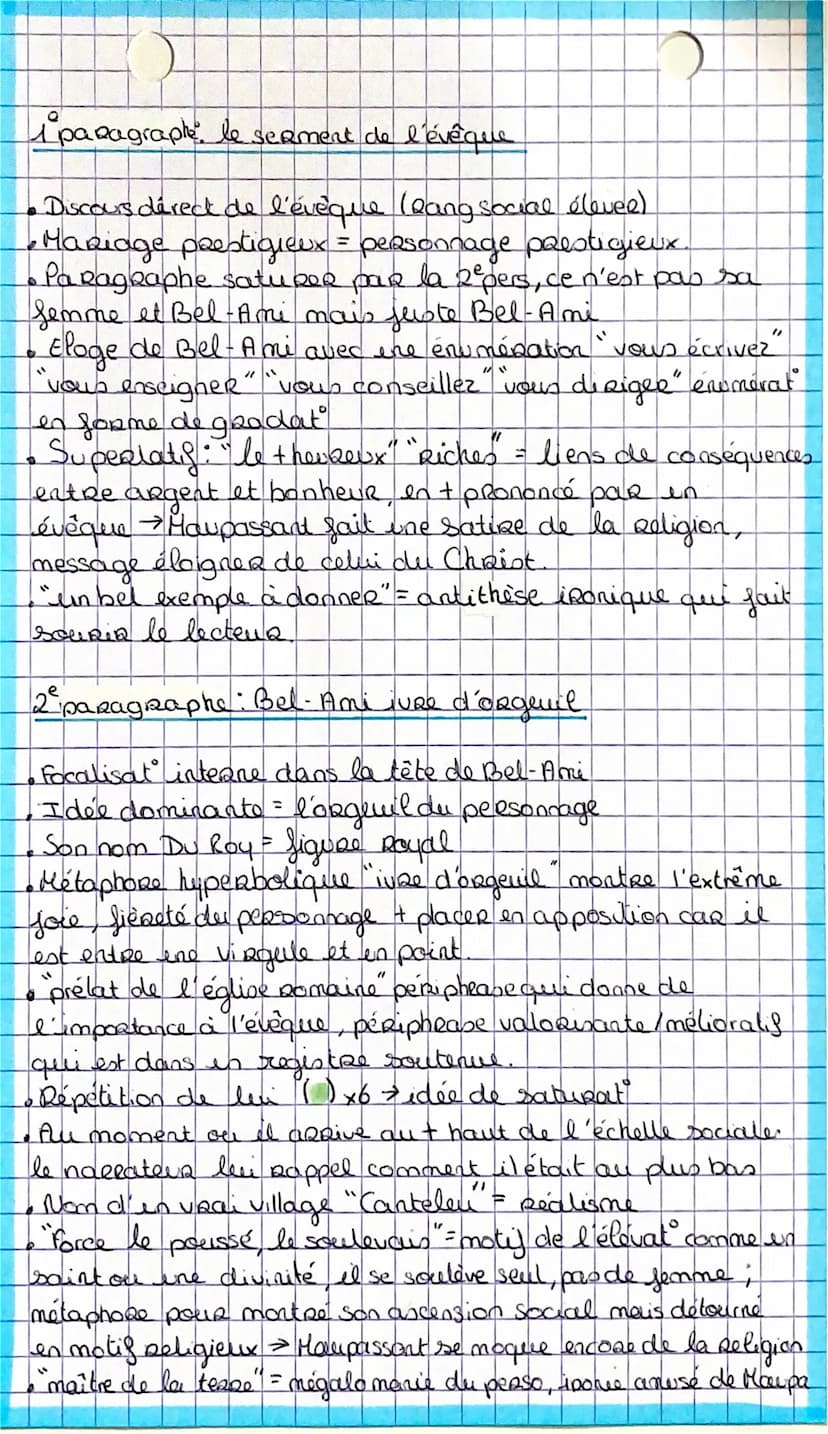 1° paragraphe: le serment de l'évêque
• Discours direct de l'évêque (Rang social élever)
• Mariage prestigieux = personnage prestigieux.
• Paragraphe saturer par la 2e pers, ce n'est pas sa
femme et Bel-Ami mais juste Bel-Ami
• Eloge de Bel-Ami avec une énumération "vous écrivez"
"vous enseigner" "vous conseillez" "vous diriger" énumérat°
en forme de gradat°
• Superlatif: "le + heureux" "Riches" = liens de conséquences
entre argent et bonheur, en + prononcé par un
évêque → Maupassant fait une satire de la religion,
message éloigner de celui du Christ.
• "un bel exemple à donner" = antithèse ironique qui fait
sourir le lecteur.
2e paragraphe: Bel-Ami ivre d'orgeuil
• Focalisat° interne dans la tête de Bel-Ami
• Idée dominante = l'orgeuil du personnage
• Son nom Du Roy = figure Royal
• Métaphore hyperbolique "ivre d'orgeuil" montre l'extrême
joie, fièreté du personnage + placer en apposition car il
est entre une virgule et un point.
• "prélat de l'église romaine" périphrase qui donne de
l'importance à l'évêque, périphrase valorisante/mélioratif
qui est dans un registre soutenue.
• Répétition de lui ( ) x6 → idée de saturat°
• Au moment ou il arrive au + haut de l'échelle sociale.
le narrateur lui rappel comment il était au plus bas
• Nom d'un vrai village "Canteleu" = Réalisme
• "Force le poussé, le soulevais" = motif de l'élévat° comme un
saint ou une divinité, il se soulève seul, pas de femme;
métaphore pour montré son ascension social mais détourné
en motif religieux → Maupassant se moque encore de la religion
• "maître de la terre" = mégalomanie du perso, ironie amusé de Maupa